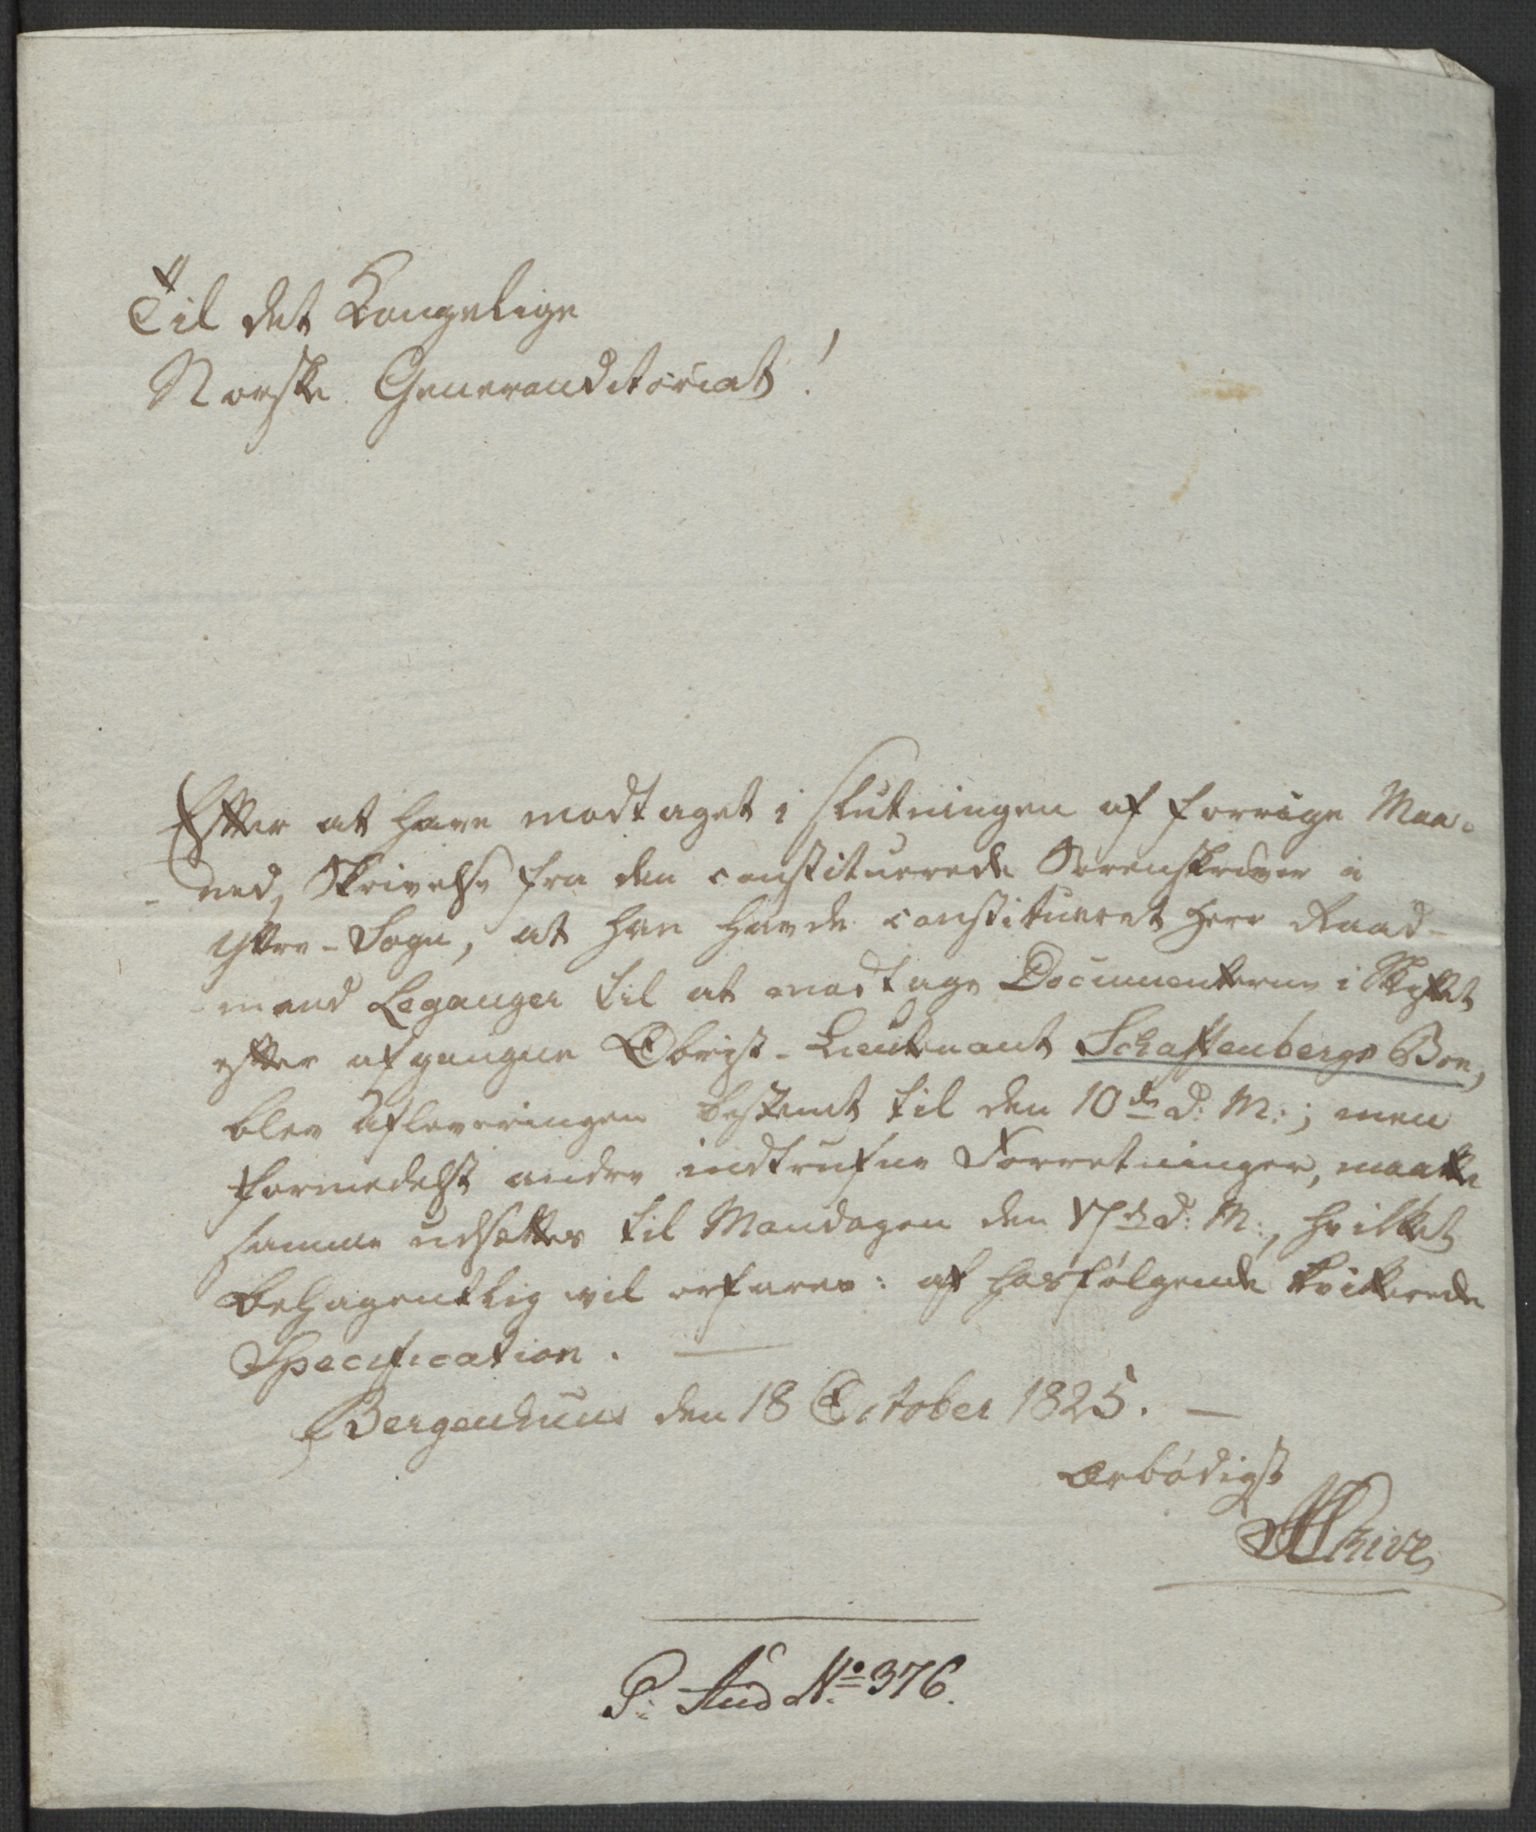 Til det Kongelige
Norske Generauditoriat!
Efter at have modtaget i Slutningen af forrige Maa-
ned, Skrivelse fra den constituerede Sorenskriver i
Yttre-Sogn, at han havde constitueret Herr Raad-
mand Leganger til at modtage Documenterne i Skiftet
efter afgangne Obrist-Lieutenant Schaftenbergs Boe,
blev Afleveringen bestemt til den 10de d: M:; men
formedelst andre indtrufne Forretninger, maatte
samme udsættes til Mandagen den 17de d: M:, hvilket
behagentlig vil erfares: af hosfølgende kvitterede
Specification. —
Bergenhuus den 18 October 1825. —
Ærbødigst
P: Aud No 376.